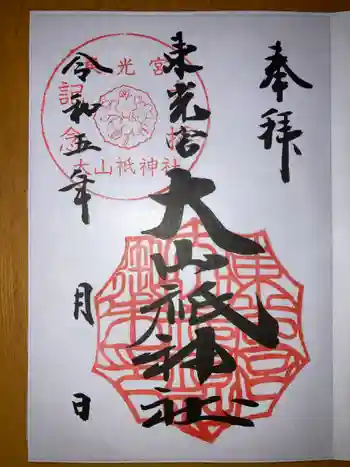 奉拝
東光宮
大山祇神社
令和五年 月 日
東光宮
記念
大山祇神社